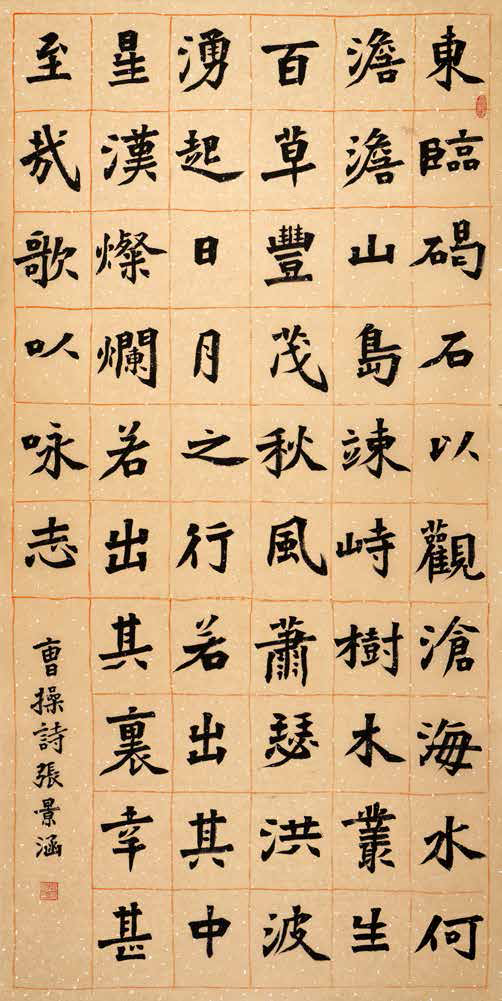 東臨碣石以觀滄海水何
澹澹山島竦峙樹木叢生
百草豐茂秋風蕭瑟洪波
湧起日月之行若出其中
星漢燦爛若出其裏幸甚
至哉歌以咏志
曹操詩張景涵